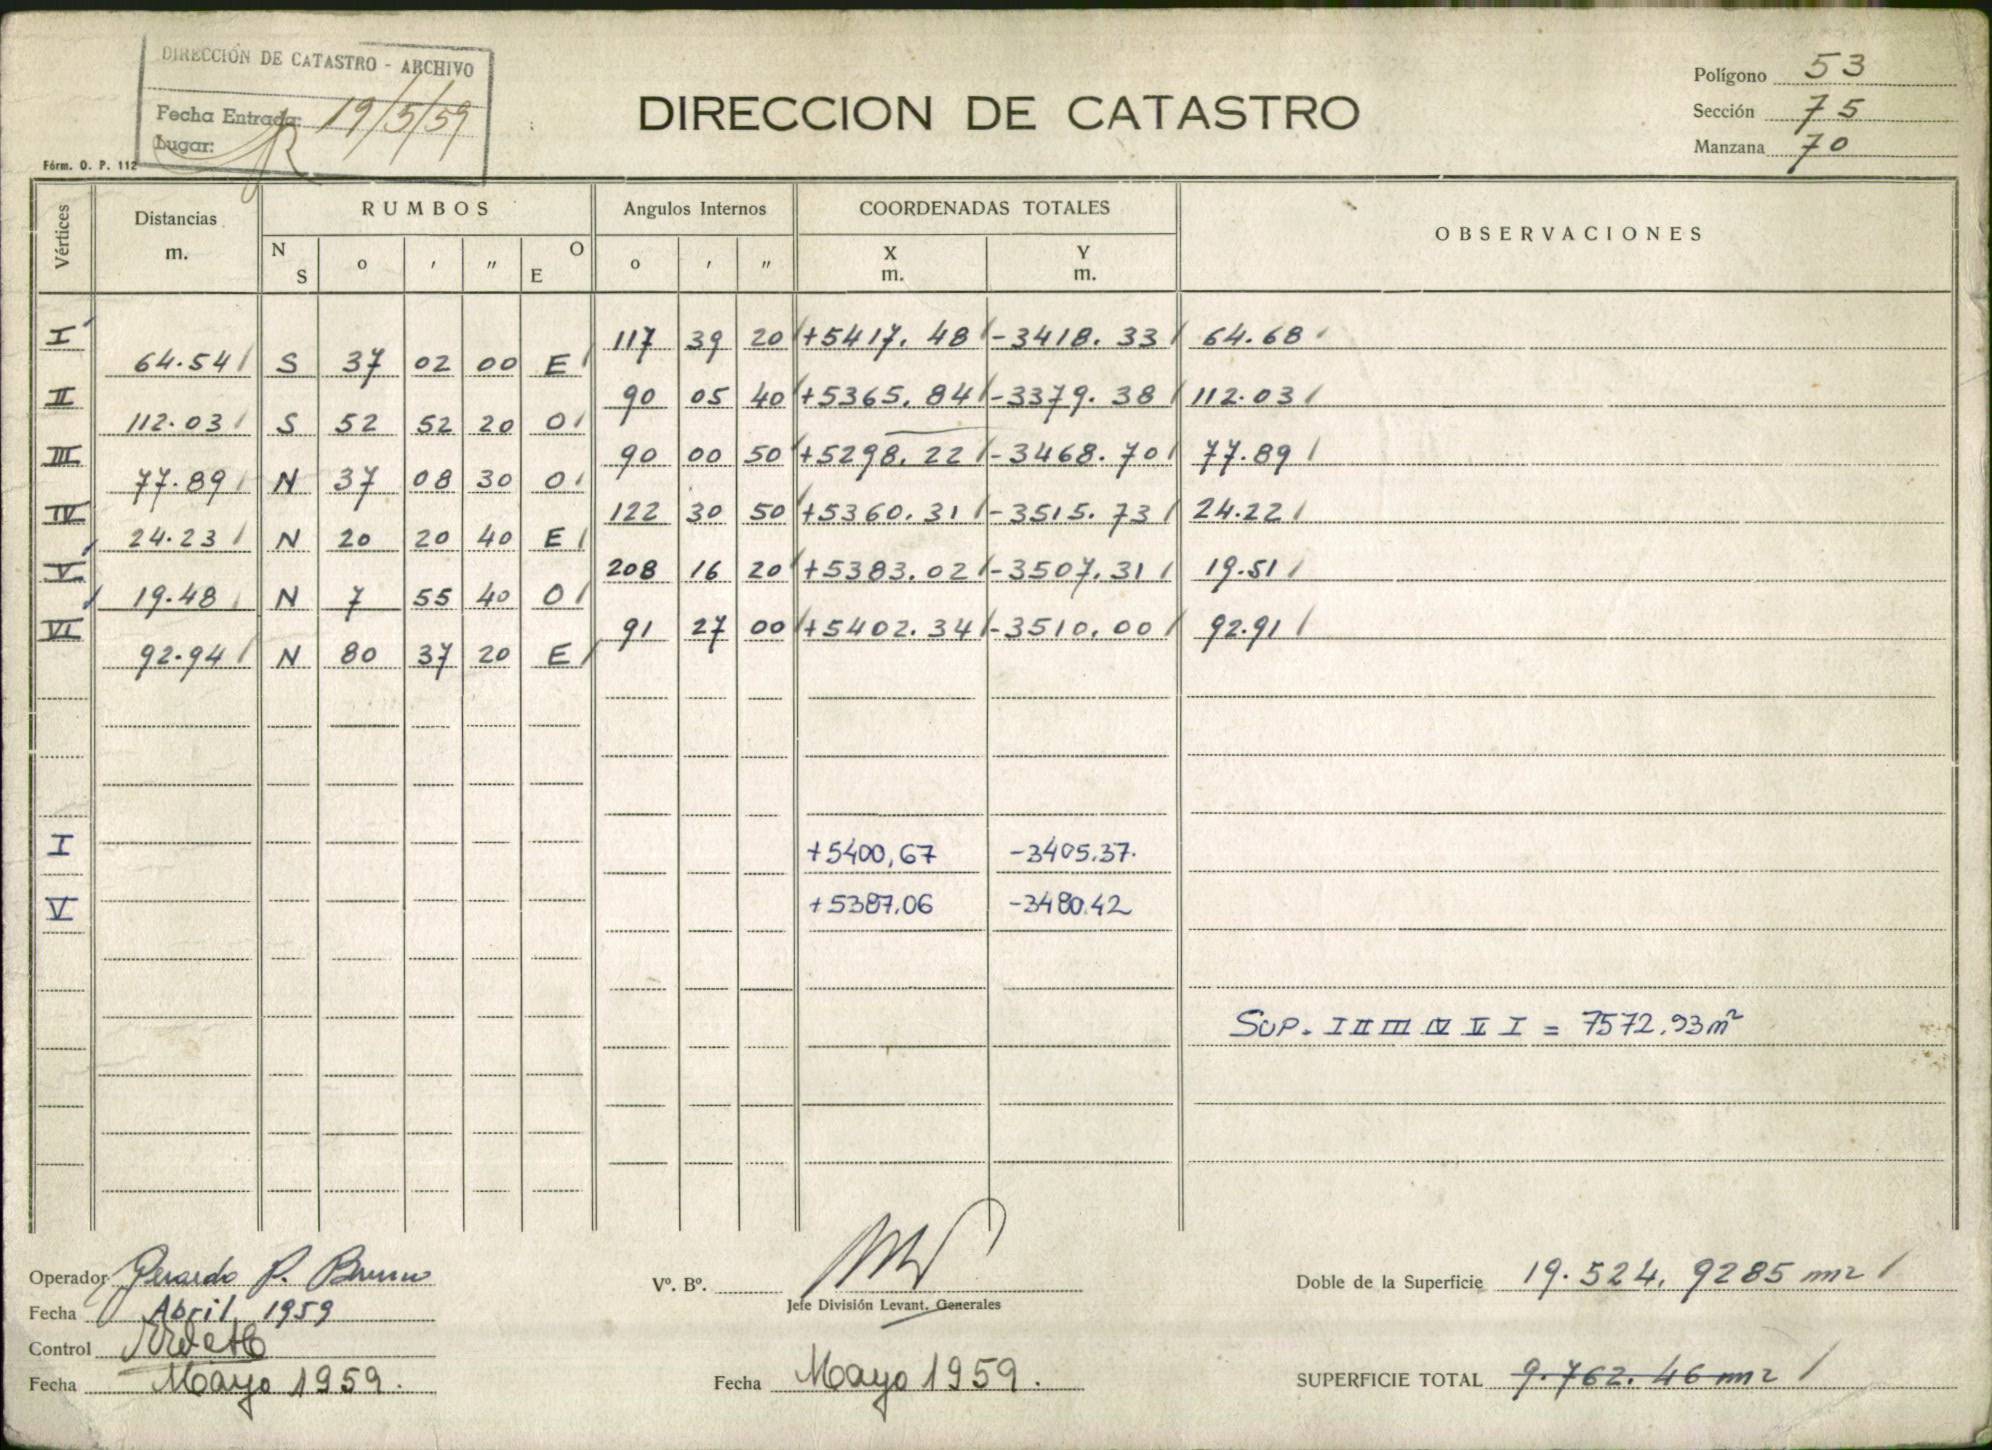 DIRECCIÓN DE CATASTRO - ARCHIVO
Fecha Entrada: 19/5/59
Lugar:
Fórm. O. P. 112
DIRECCION DE CATASTRO
Polígono 53
Sección 75
Manzana 70
Vértices Distancias m. RUMBOS Angulos Internos COORDENADAS TOTALES OBSERVACIONES
N S o ' " O E o ' " X m. Y m.
I 117 39 20 +5417.48 -3418.33 64.68
64.54 S 37 02 00 E
II 90 05 40 +5365.84 -3379.38 112.03
112.03 S 52 52 20 O
III 90 00 50 +5298.22 -3468.70 77.89
77.89 N 37 08 30 O
IV 122 30 50 +5360.31 -3515.73 24.22
24.23 N 20 20 40 E
V 208 16 20 +5383.02 -3507.31 19.51
19.48 N 7 55 40 O
VI 91 27 00 +5402.34 -3510.00 92.91
92.94 N 80 37 20 E
I +5400,67 -3405.37.
V +5387.06 -3480.42
SUP. I II III IV V I = 7572.93 m²
Operador Gerardo P. Bruno
Fecha Abril 1959
Control
Fecha Mayo 1959.
Vº. Bº.
Jefe División Levant. Generales
Fecha Mayo 1959.
Doble de la Superficie 19.524,9285 m2
SUPERFICIE TOTAL 9.762.46 m2